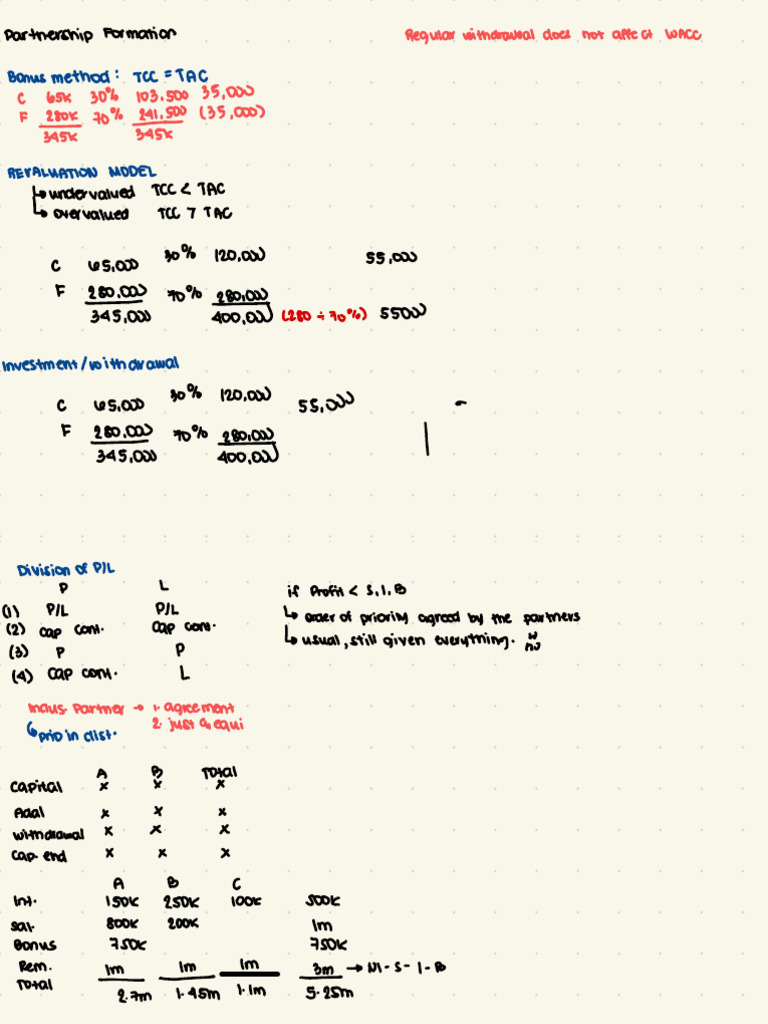 Partnership Formation
Regular withdrawal does not affect WACC
Bonus method: TCC = TAC
C 65K 30% 103,500 35,000
F 280K 70% 241,500 (35,000)
345K 345K
REVALUATION MODEL
↳ undervalued TCC < TAC
↳ overvalued TCC > TAC
C 65,000 30% 120,000 55,000
F 280,000 70% 280,000
345,000 400,000 (280 ÷ 70%) 55000
Investment/withdrawal
C 65,000 30% 120,000 55,000
F 280,000 70% 280,000
345,000 400,000
Division of P/L
P L
(1) P/L P/L
(2) cap cont. cap cont.
(3) P P
(4) cap cont. L
if Profit < S, I, B
↳ order of priority agreed by the partners
↳ usual, still given everything.
Indus. Partner → 1. agreement
2. just & equi
↳ prio in dist.
A B Total
Capital x x x
Addl x x x
withdrawal x x x
Cap. end x x x
A B C
Int. 150K 250K 100K 500K
Sal. 800K 200K 1m
Bonus 750K 750K
Rem. 1m 1m 1m 3m → NI - S - I - B
Total 2.7m 1.45m 1.1m 5.25m